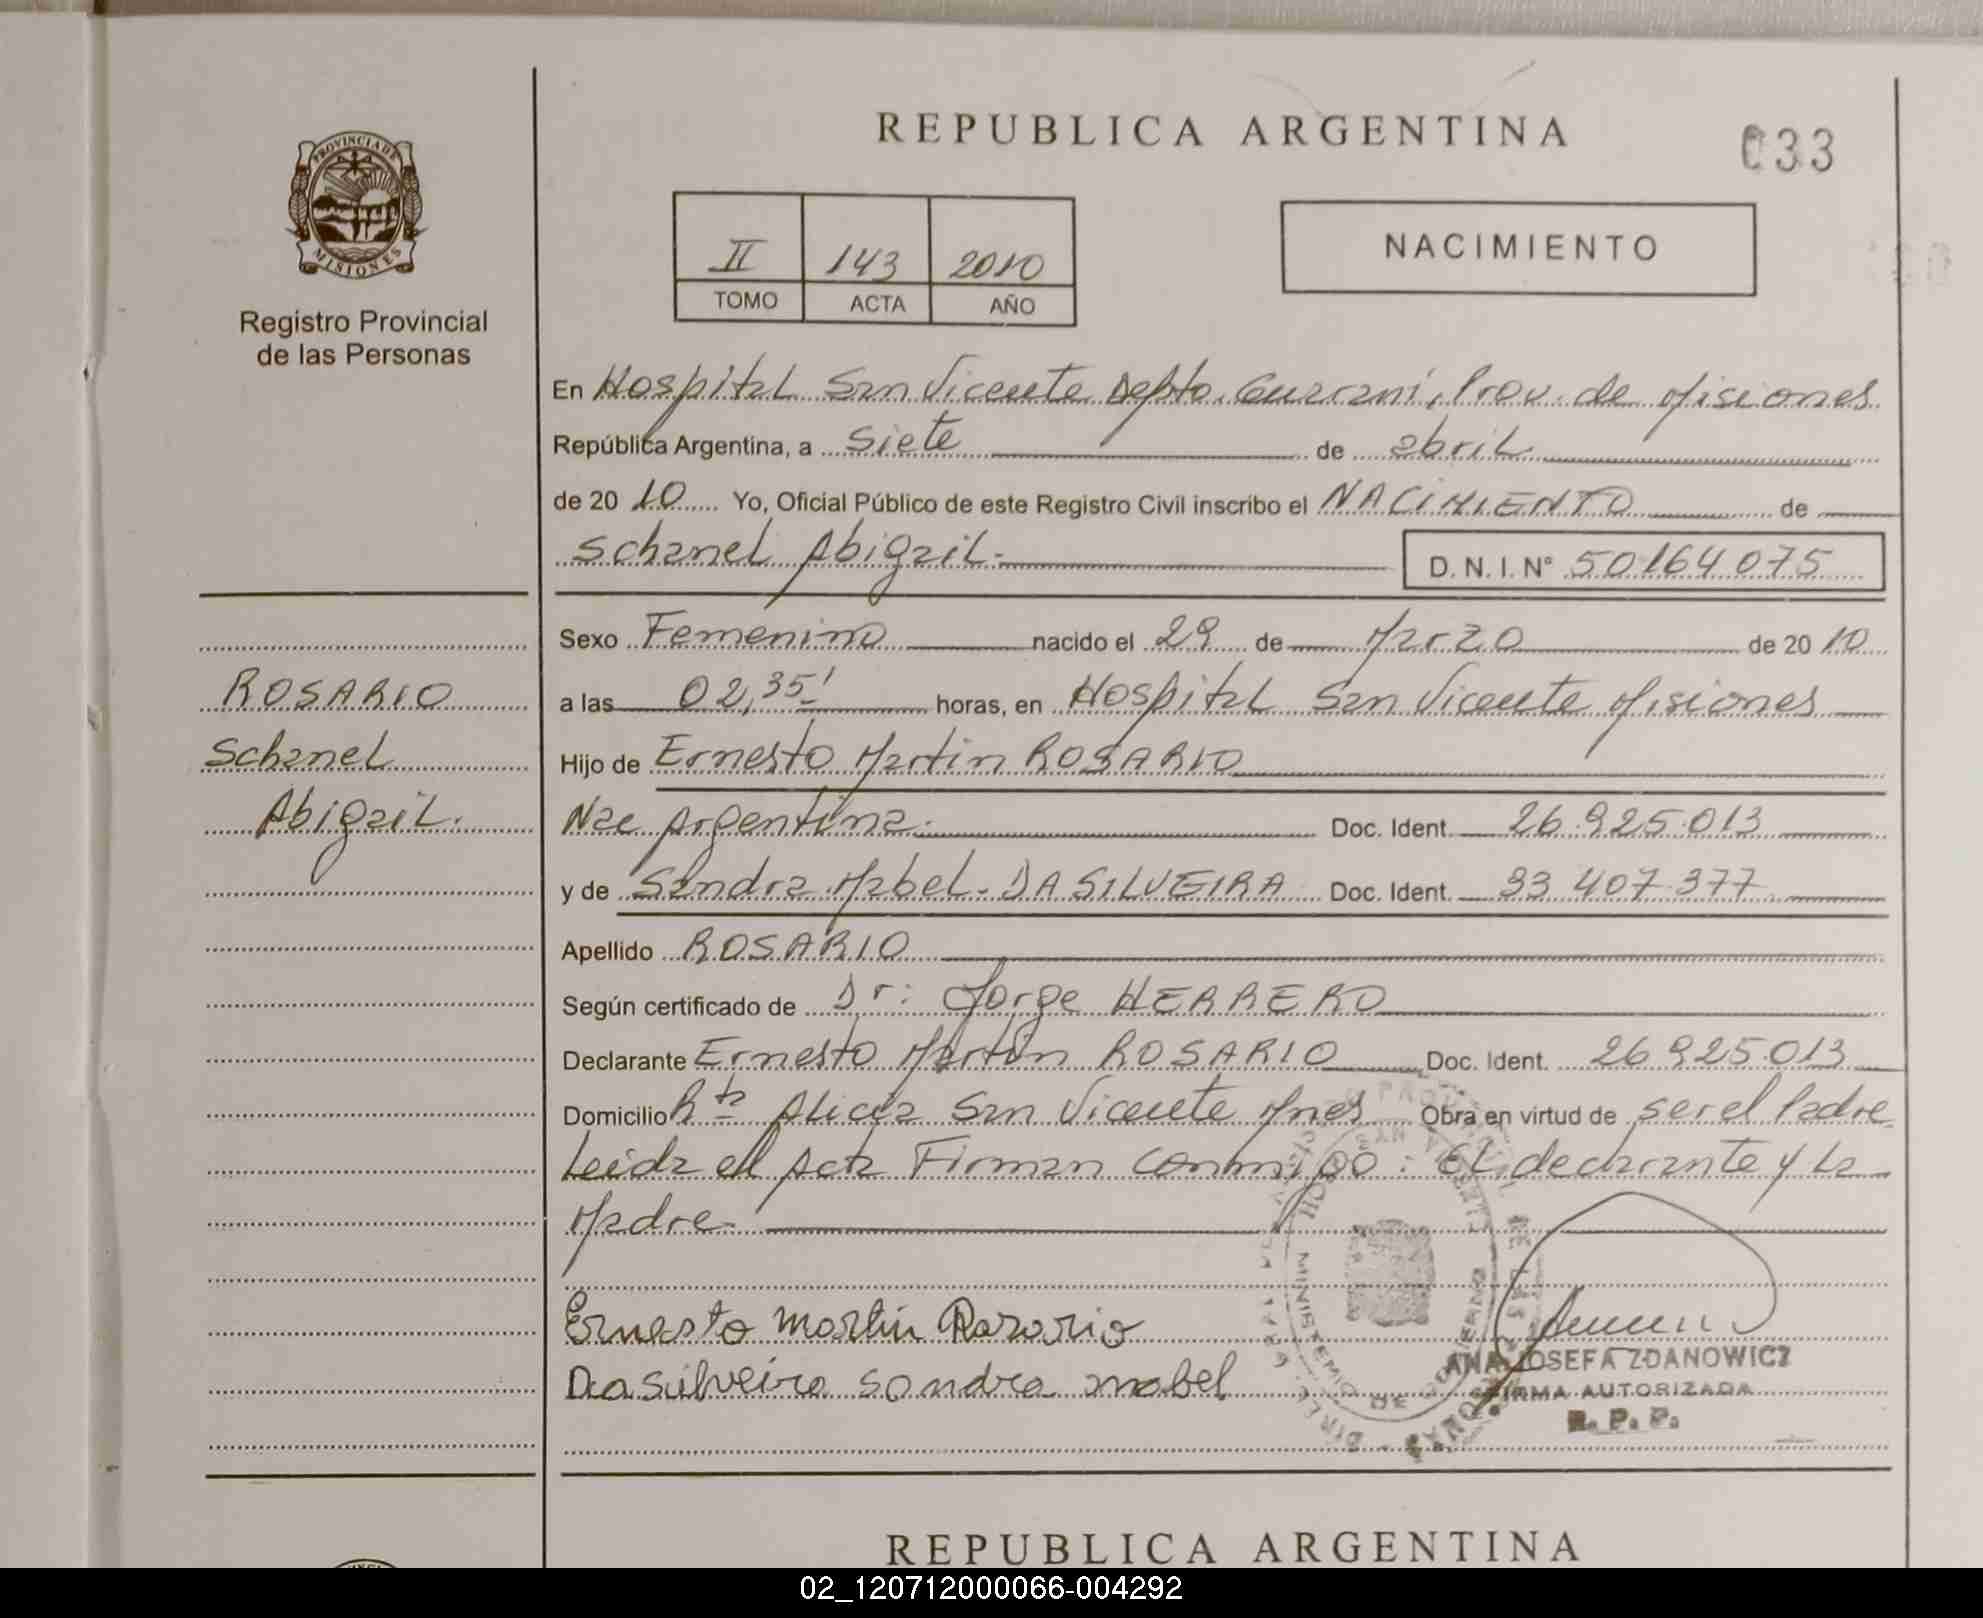 REPUBLICA ARGENTINA
033
PROVINCIA DE
MISIONES
Registro Provincial
de las Personas
II 143 2010
TOMO ACTA AÑO
NACIMIENTO
En Hospital San Vicente Depto. Guarani, Prov. de Misiones
República Argentina, a Siete de abril
de 2010 Yo, Oficial Público de este Registro Civil inscribo el NACIMIENTO de
Schanel Abigail.
D. N. I. N° 50164075
Sexo Femenino nacido el 29 de Marzo de 2010
a las 02,35' horas, en Hospital San Vicente Misiones
Hijo de Ernesto Martin ROSARIO
Nac Argentina. Doc. Ident. 26.925.013
y de Sandra Mabel. DA SILVEIRA Doc. Ident. 33 407.377
Apellido ROSARIO
Según certificado de Dr: Jorge HERRERO
Declarante Ernesto Martin ROSARIO Doc. Ident. 26925.013
Domicilio Rta Alicia San Vicente Mnes Obra en virtud de ser el Padre
Leida el Acta Firman conmigo: El declarante y La
Madre.
ROSARIO
Schanel
Abigail.
Ernesto Martin Rosario
Dasilveira sandra mabel
HOSPITAL SAN VICENTE
ANA JOSEFA ZDANOWICZ
FIRMA AUTORIZADA
R. P. P.
REPUBLICA ARGENTINA
02_120712000066-004292